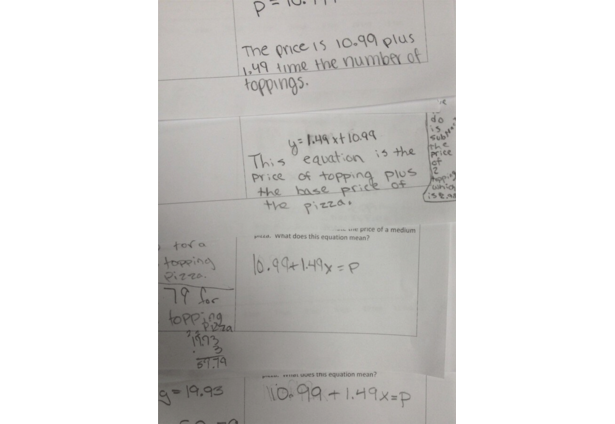 P = 10.
The price is 10.99 plus
1.49 time the number of
toppings.
y=1.49x+10.99
This equation is the
price of topping plus
the base price of
the pizza.
do
is
the
price
of
2
which
price of a medium
What does this equation mean?
for a
topping
pizza.
10.99+1.49x=P
79 for
topping
pizza
1993
3
59.79
does this equation mean?
g=19.93
10.99+1.49x=P